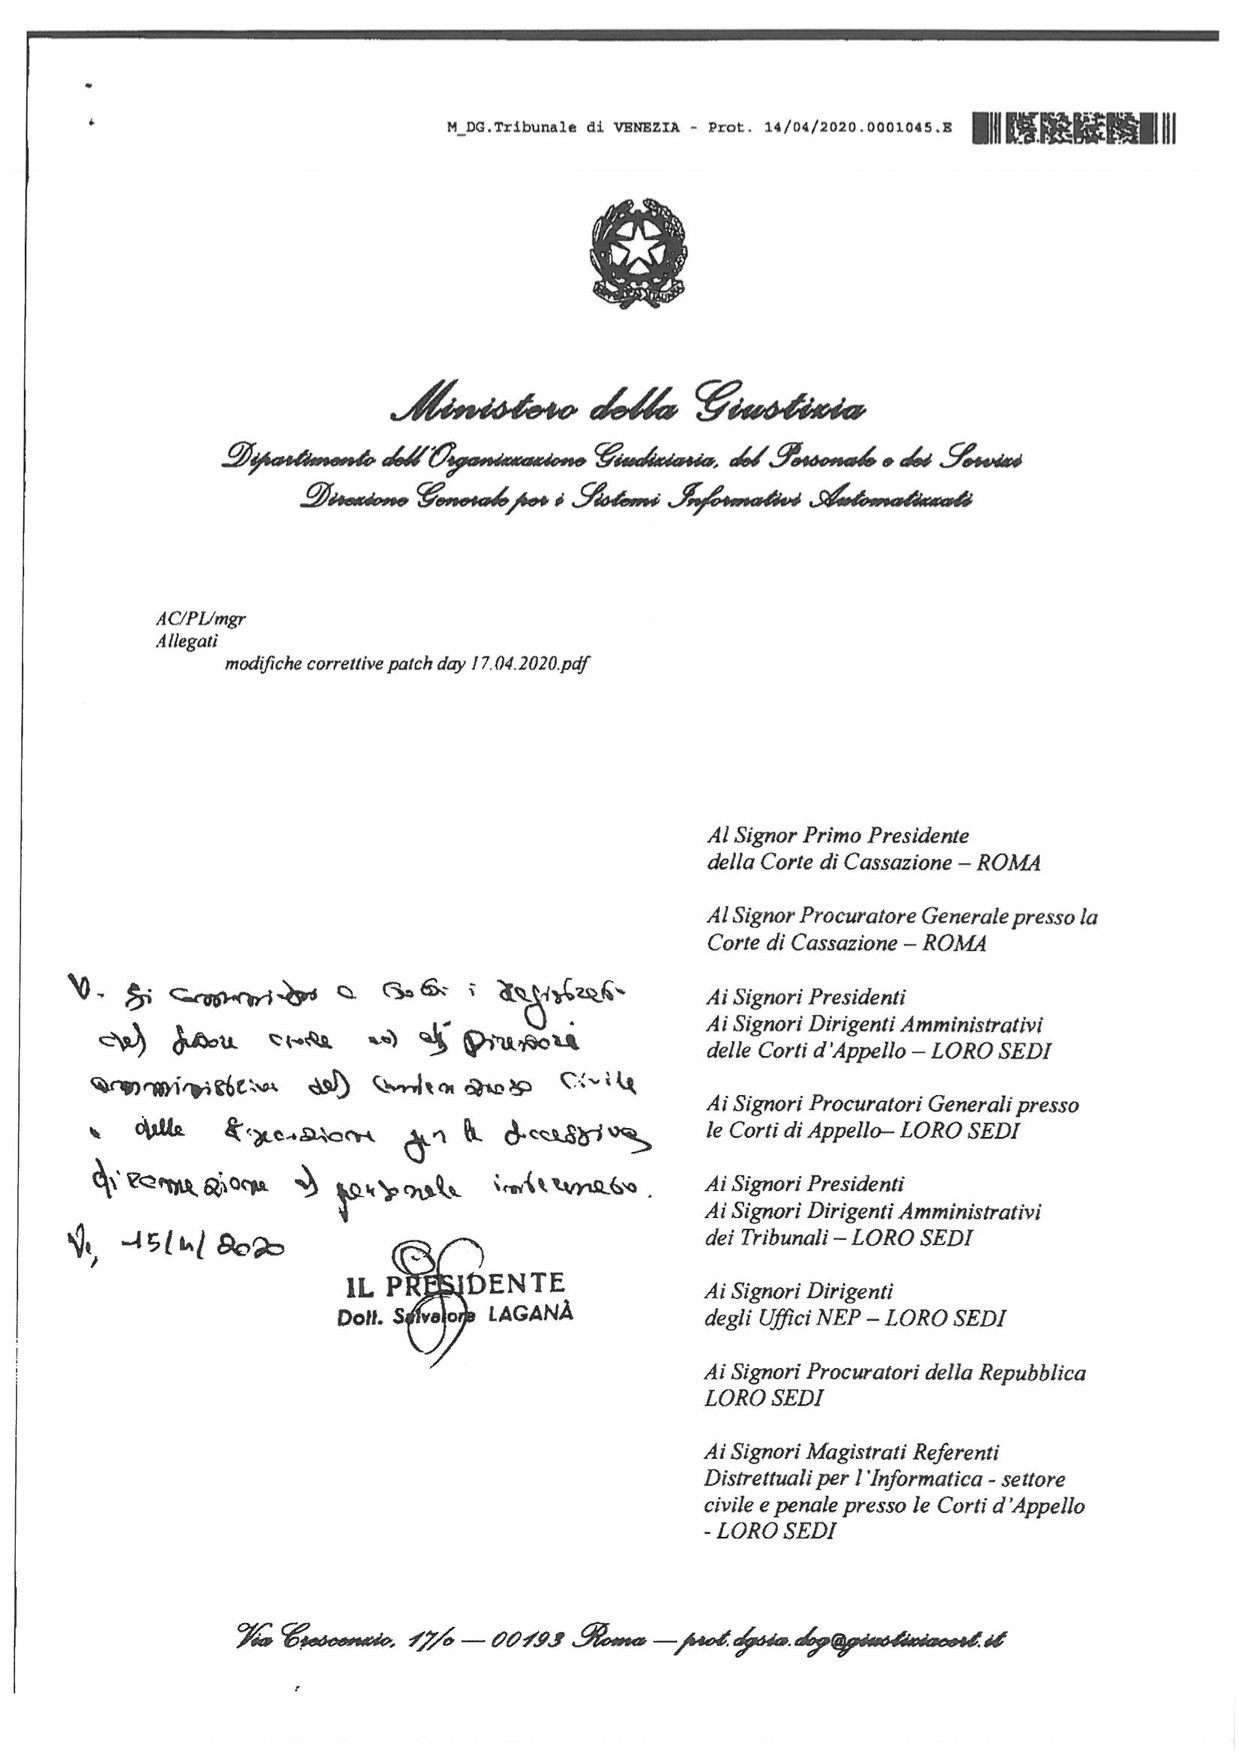 M_DG.Tribunale di VENEZIA - Prot. 14/04/2020.0001045.E
Ministero della Giustizia
Dipartimento dell'Organizzazione Giudiziaria, del Personale e dei Servizi
Direzione Generale per i Sistemi Informativi Automatizzati
AC/PL/mgr
Allegati
modifiche correttive patch day 17.04.2020.pdf
Al Signor Primo Presidente
della Corte di Cassazione – ROMA
Al Signor Procuratore Generale presso la
Corte di Cassazione – ROMA
Ai Signori Presidenti
Ai Signori Dirigenti Amministrativi
delle Corti d'Appello – LORO SEDI
Ai Signori Procuratori Generali presso
le Corti di Appello– LORO SEDI
Ai Signori Presidenti
Ai Signori Dirigenti Amministrativi
dei Tribunali – LORO SEDI
Ai Signori Dirigenti
degli Uffici NEP – LORO SEDI
Ai Signori Procuratori della Repubblica
LORO SEDI
Ai Signori Magistrati Referenti
Distrettuali per l'Informatica - settore
civile e penale presso le Corti d'Appello
- LORO SEDI
V. Si a tutti i Magistrati
del settore civile ed ai Direttori
amministrativi del Contenzioso Civile
e delle Esecuzioni per la successiva
diramazione al personale interessato.
Ve, 15/4/2020
IL PRESIDENTE
Dott. Salvatore LAGANÀ
Via Crescenzio, 17/c — 00193 Roma — prot.dgsia.dog@giustiziacert.it